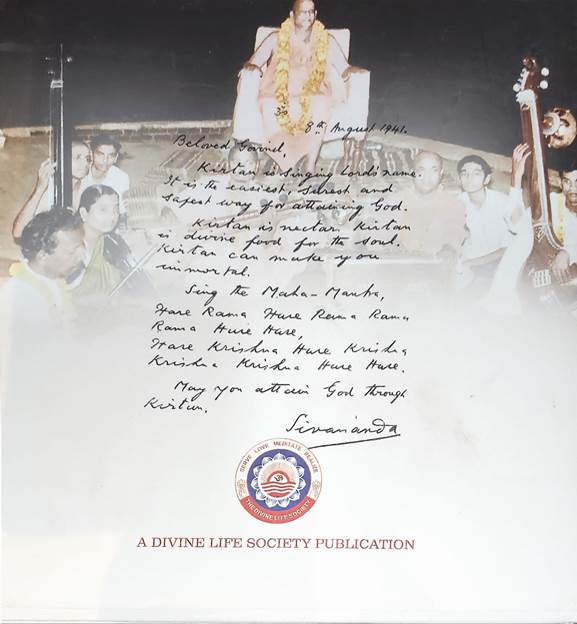 ॐ
8th August 1941.
Beloved Govind,
Kirtan is singing Lord's name.
It is the easiest, surest and
safest way for attaining God.
Kirtan is nectar. Kirtan
is divine food for the soul.
Kirtan can make you
immortal.
Sing the Maha-Mantra,
Hare Rama Hare Rama Rama
Rama Hare Hare,
Hare Krishna Hare Krishna
Krishna Krishna Hare Hare.
May you attain God through
Kirtan.
Sivananda
SERVE LOVE MEDITATE REALIZE
ॐ
THE DIVINE LIFE SOCIETY
A DIVINE LIFE SOCIETY PUBLICATION